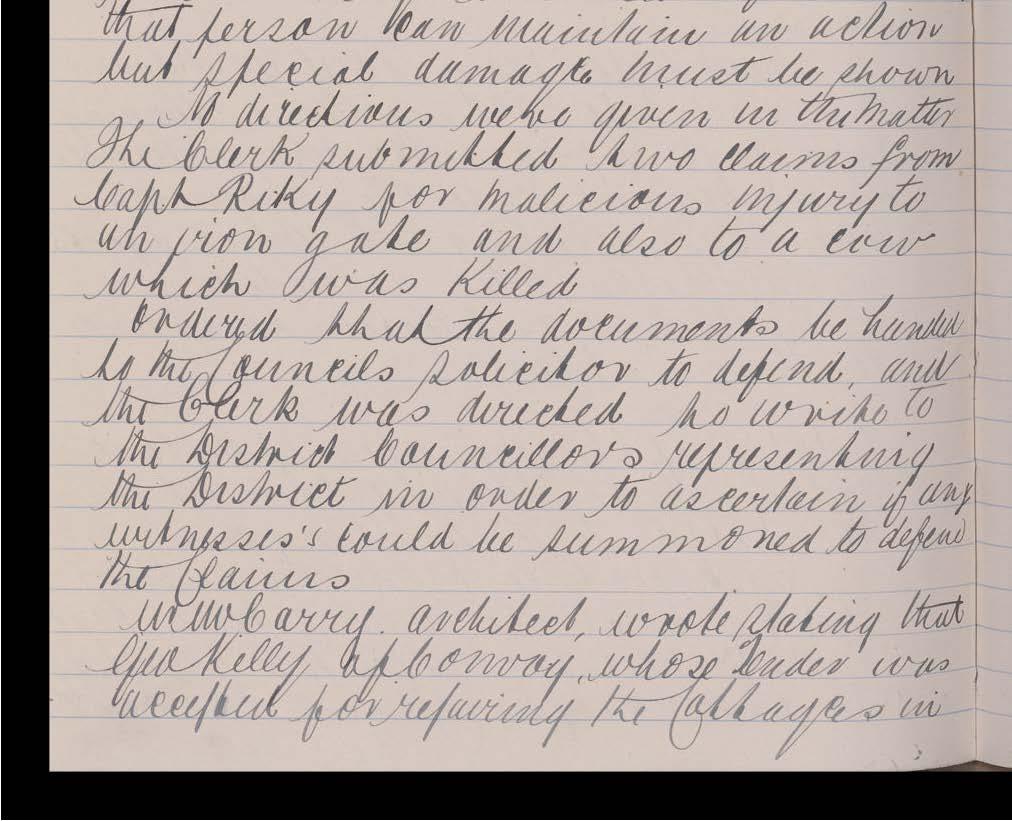 that person can maintain an action
but special damage must be shown
No directions were given in the matter
The Clerk submitted two claims from
Capt Riky for malicious injury to
an iron gate and also to a cow
which was Killed
ordered that the documents be handed
to the Councils solicitor to defend, and
the Clerk was directed to write to
the District Councillors representing
the District in order to ascertain if any
witnesses's could be summoned to defend
the Claims
McCarry architect, wrote stating that
Geo Kelly of Convoy, whose tender was
accepted for repairing the Cottages in